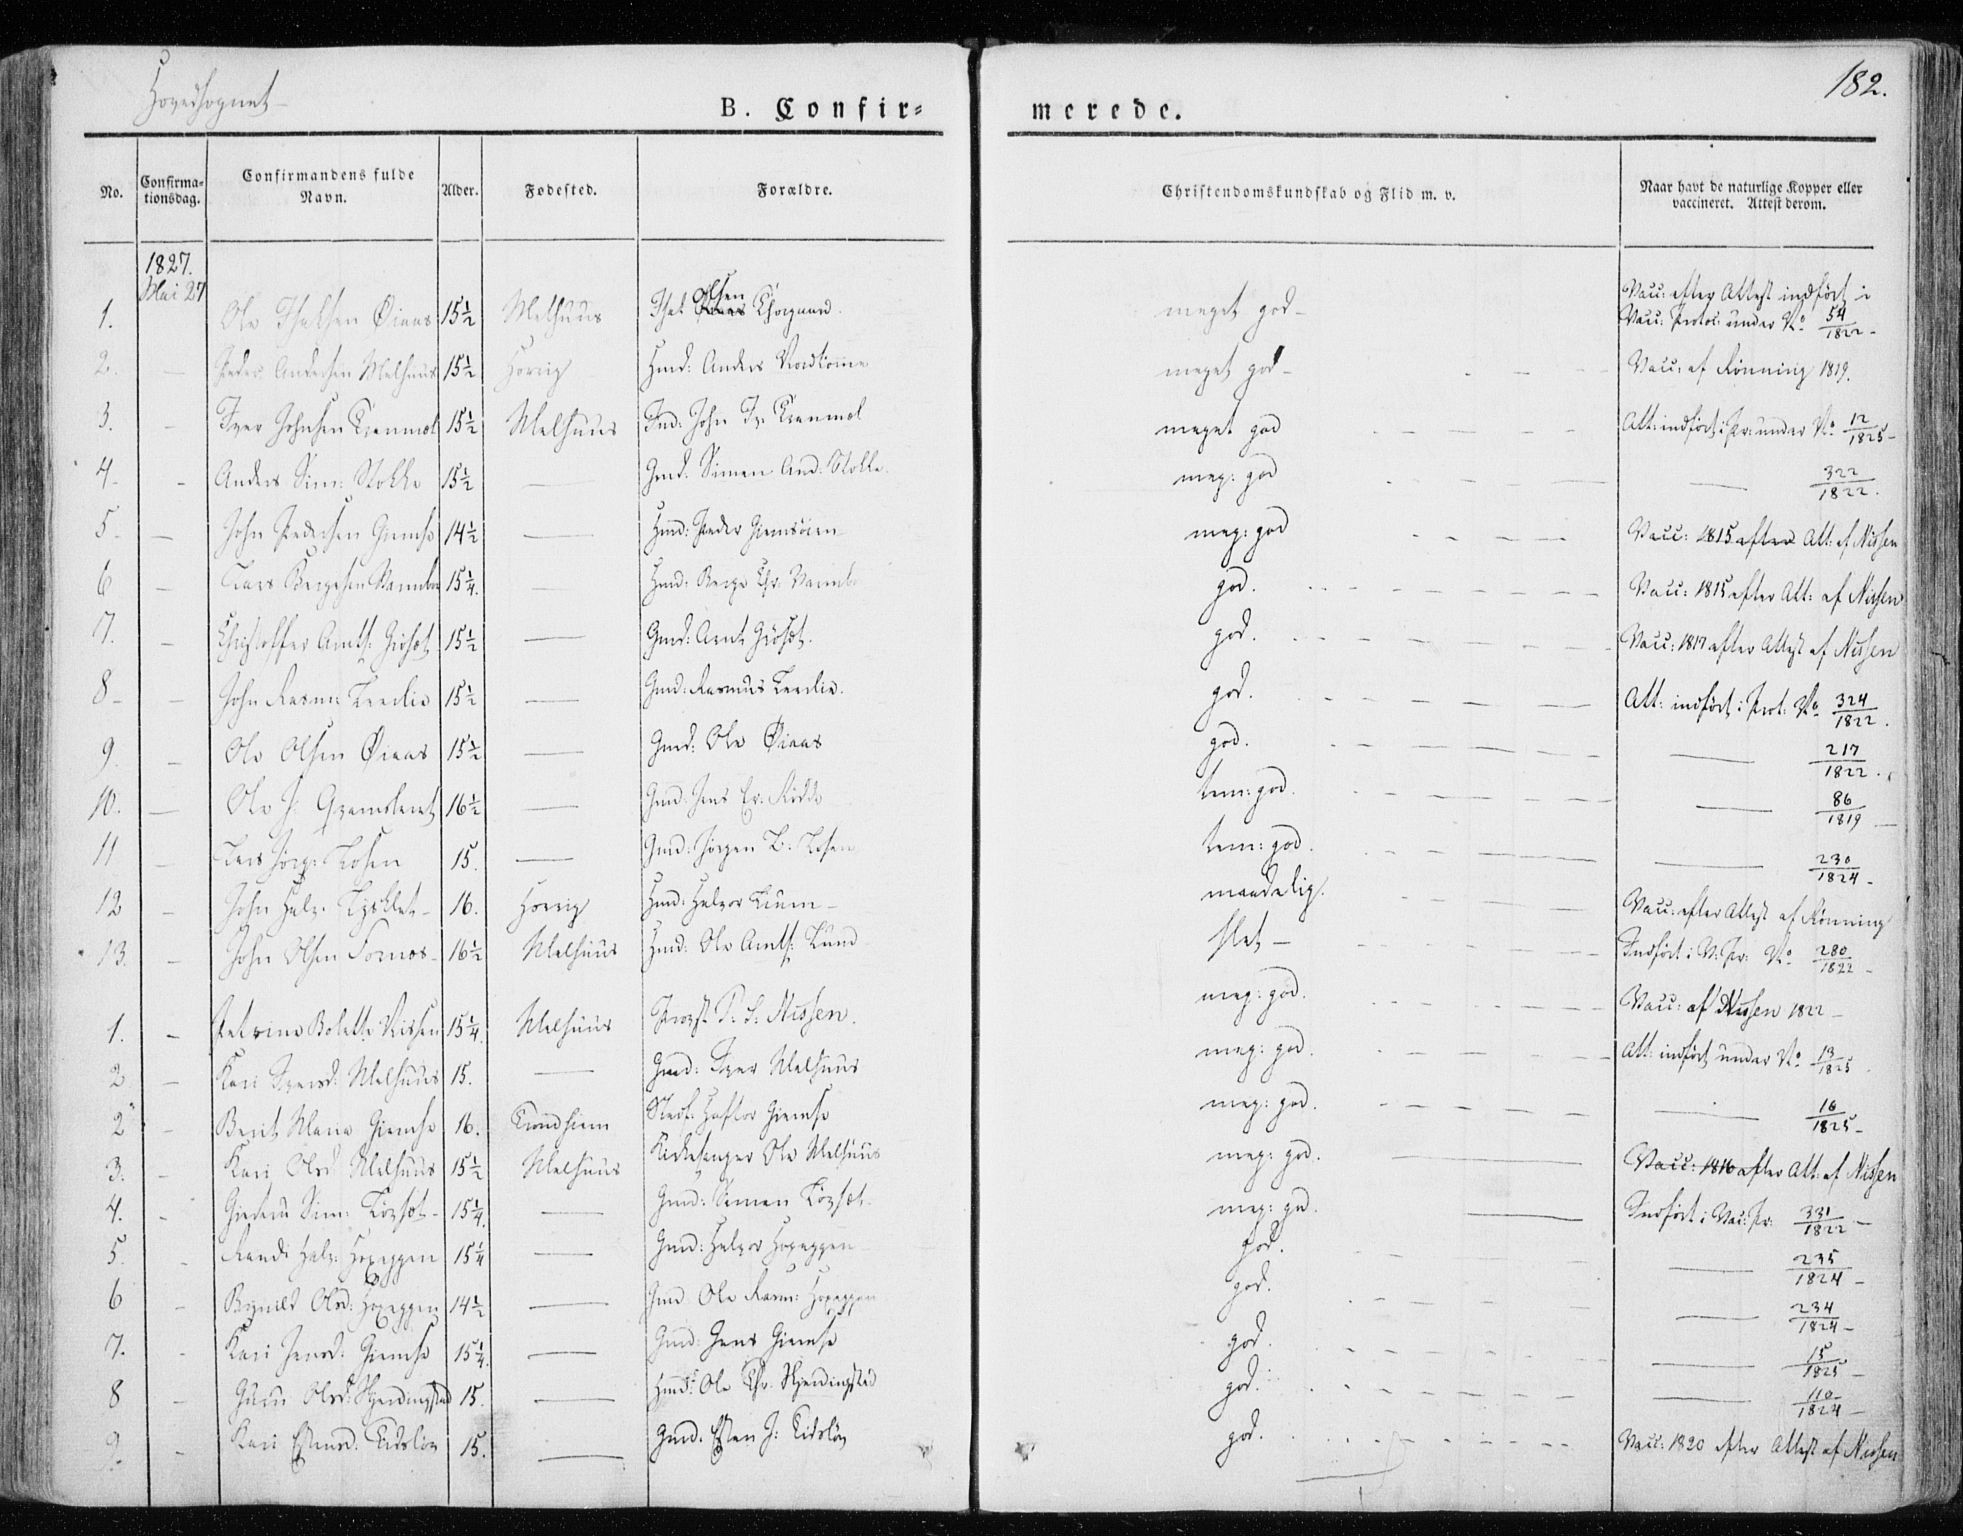 Hovedsognet
182.
B. Confir=
merede.
No. Confirma-tionsdag. Confirmandens fulde Navn. Alder. Fødested. Forældre. Christendomskundskab og Flid m. v. Naar havt de naturlige Kopper eller vaccineret. Attest derom.
1827.
Mai 27
1. Ole Isaksen Øiaas 15½ Melhuus Isak Olsen meget god Vacc: efter Attest indført i Vacc: Protoc: under No 54/1822
2. Peder Andersen Melhuus 15½ Horrig Hmd: Anders meget god Vacc: af Rønning 1819.
3. Iver Johnsen 15½ Melhuus John Iv. meget god Att: indført i Pr: under No 12/1825
4. Anders Sim: Stokke 15½ Gmd: Simen And: Stokke meg: god 322/1822.
5. John Pedersen Giemse 14½ Hmd: Peder meg: god Vacc: 1815 efter Att: af Nissen
6 Lars Bergesen Varmbo 15¼. Hmd: Berge Chr. Varmbo god. Vacc: 1815 efter Att: af Nissen
7. Christoffer Arnts: 15½ Gmd: Arnt god. Vacc: 1817 efter Attest af Nissen
8 John Rasm: 15½ Gmd: Rasmus god. Att: indført i Prot: No 324/1822.
9. Ole Olsen Øiaas 15½ Gmd: Ole Øiaas god. 217/1822.
10. Ole J: 16½ Gmd: Jens Er. tem: god. 86/1819
11 Lars Jörg: Losen 15. Gmd: Jörgen L: Losen tem: god. 230/1824
12 John Halv. 16. Horrig Hmd: Halvor maadelig. Vacc: efter Attest af Rønning
13. John Olsen Fornes 16½ Melhuus Hmd: Ole Arnts: Lund slet Indført i V: Pr: No 280/1822
1. Petrine Bolette Nissen 15¼ Melhuus Provst Nissen. meg: god. Vacc: af Nissen 1822
2 Kari Iversd: Melhuus 15. Gmd: Iver Melhuus meg: god. Att: indført under No 13/1825
2 Berit Maria Giemse 16. Trondhiem Haftor Giemse meg: god. 16/1825
3. Kari Olsd Melhuus 15½ Melhuus Kirkesanger Ole Melhuus meg: god. Vacc: 1816 efter Att: af Nissen
4. Sim: 15¼. Gmd: Simen meg: god. Indført i Vac: Pr: 331/1822
5. Randi Halv: Hoxeggen 15¼ Gmd: Halvor Hoxeggen god. 235/1824
6 Olsd: Hoxeggen 14½ Gmd Ole Rasm: Hoxeggen god. 234/1824
7. Kari Jensd: Giemse 15¼. Gmd: Jens Giemse god. 15/1825
8 Guru Olsd: Skjerdingstad 15. Hmd: Ole Chr. Skjerdingstad god. 110/1824
9. Kari Estensd: 15. Gmd: Esten J: god. Vacc: 1820 efter Attest af Nissen